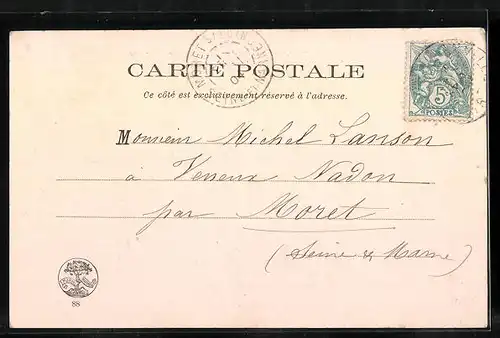 CARTE POSTALE
Ce côté est exclusivement réservé à l'adresse.
5
POSTES
Monsieur Michel Lanson
à Veneux Nadon
par Moret
(Seine & Marne)
88